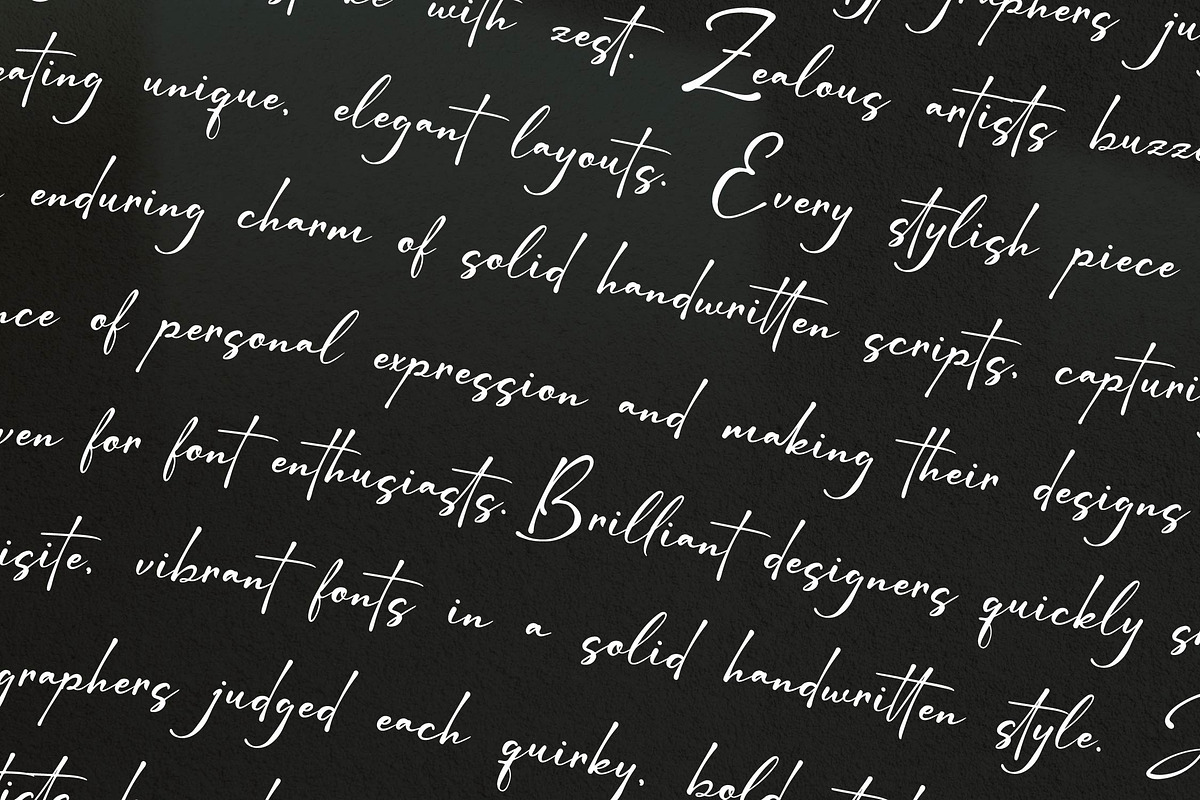 graphers ju
with zest. Zealous artists buzze
eating unique, elegant layouts. Every stylish piece
enduring charm of solid handwritten scripts, capturi
nce of personal expression and making their designs
ven for font enthusiasts. Brilliant designers quickly
isite, vibrant fonts in a solid handwritten style.
graphers judged each quirky, bold